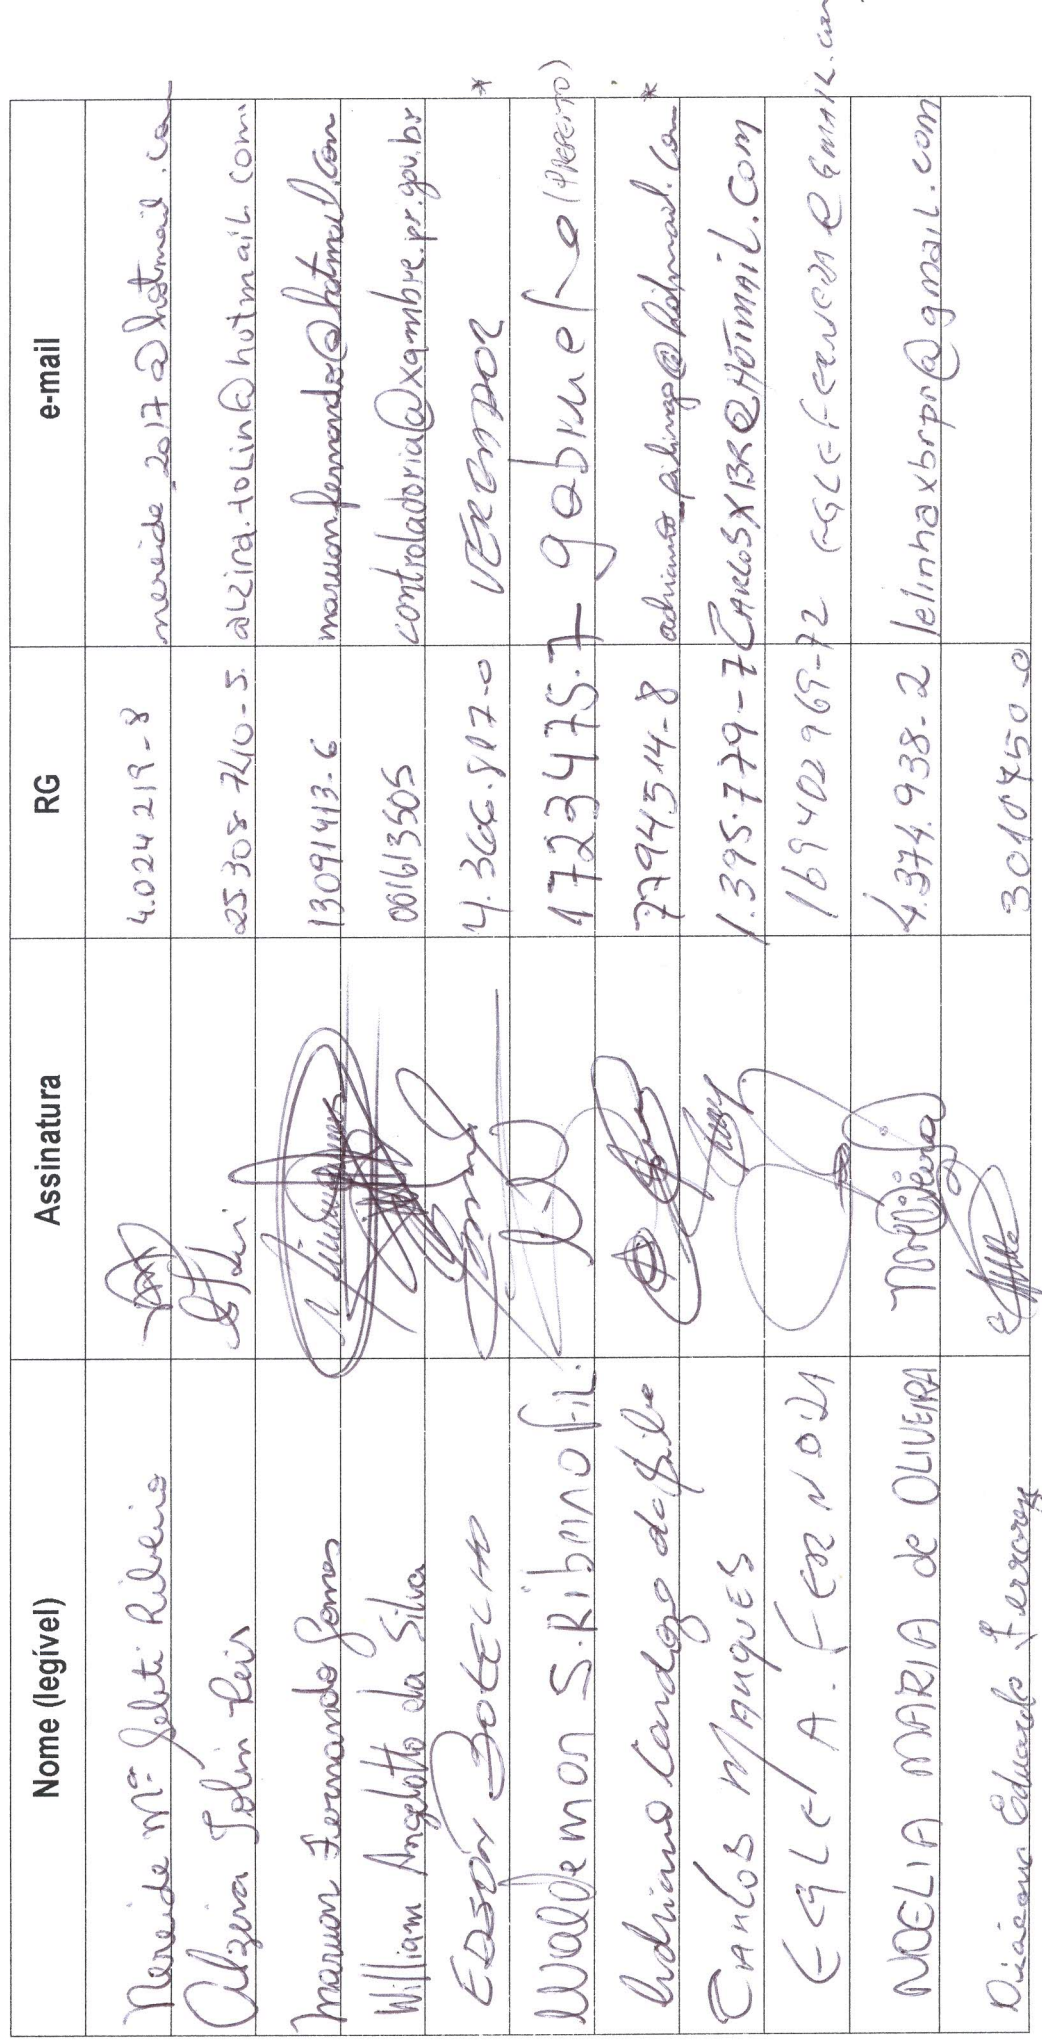 Nome (legível) Assinatura RG e-mail
Nereide Mª Ribeiro 4.024219-8 nereide_2017@hotmail.com
Alzira Tolin Reis 25.308.740-5 alzira.tolin@hotmail.com
Maruon Fernando Gomes 13091413-6 maruonfernando@hotmail.com
William Angelotto da Silva 061613505 controladoria@xambre.pr.gov.br
EDSON BOTELHO 4.366.817-0 VEREADOR *
Waldemar S. Ribirino Fil. 1723475-7 gabinete (PREFEITO)
Adriano Cardozo da Silva 7794514-8 *
CARLOS MARQUES 1.395.779-7 CARLOSXBR@HOTMAIL.COM
EGLE A. 169402969-72
NOELIA MARIA de OLIVEIRA 4.374.938-2 lelinhaxbrpr@gmail.com
Eduardo Ferrarezi